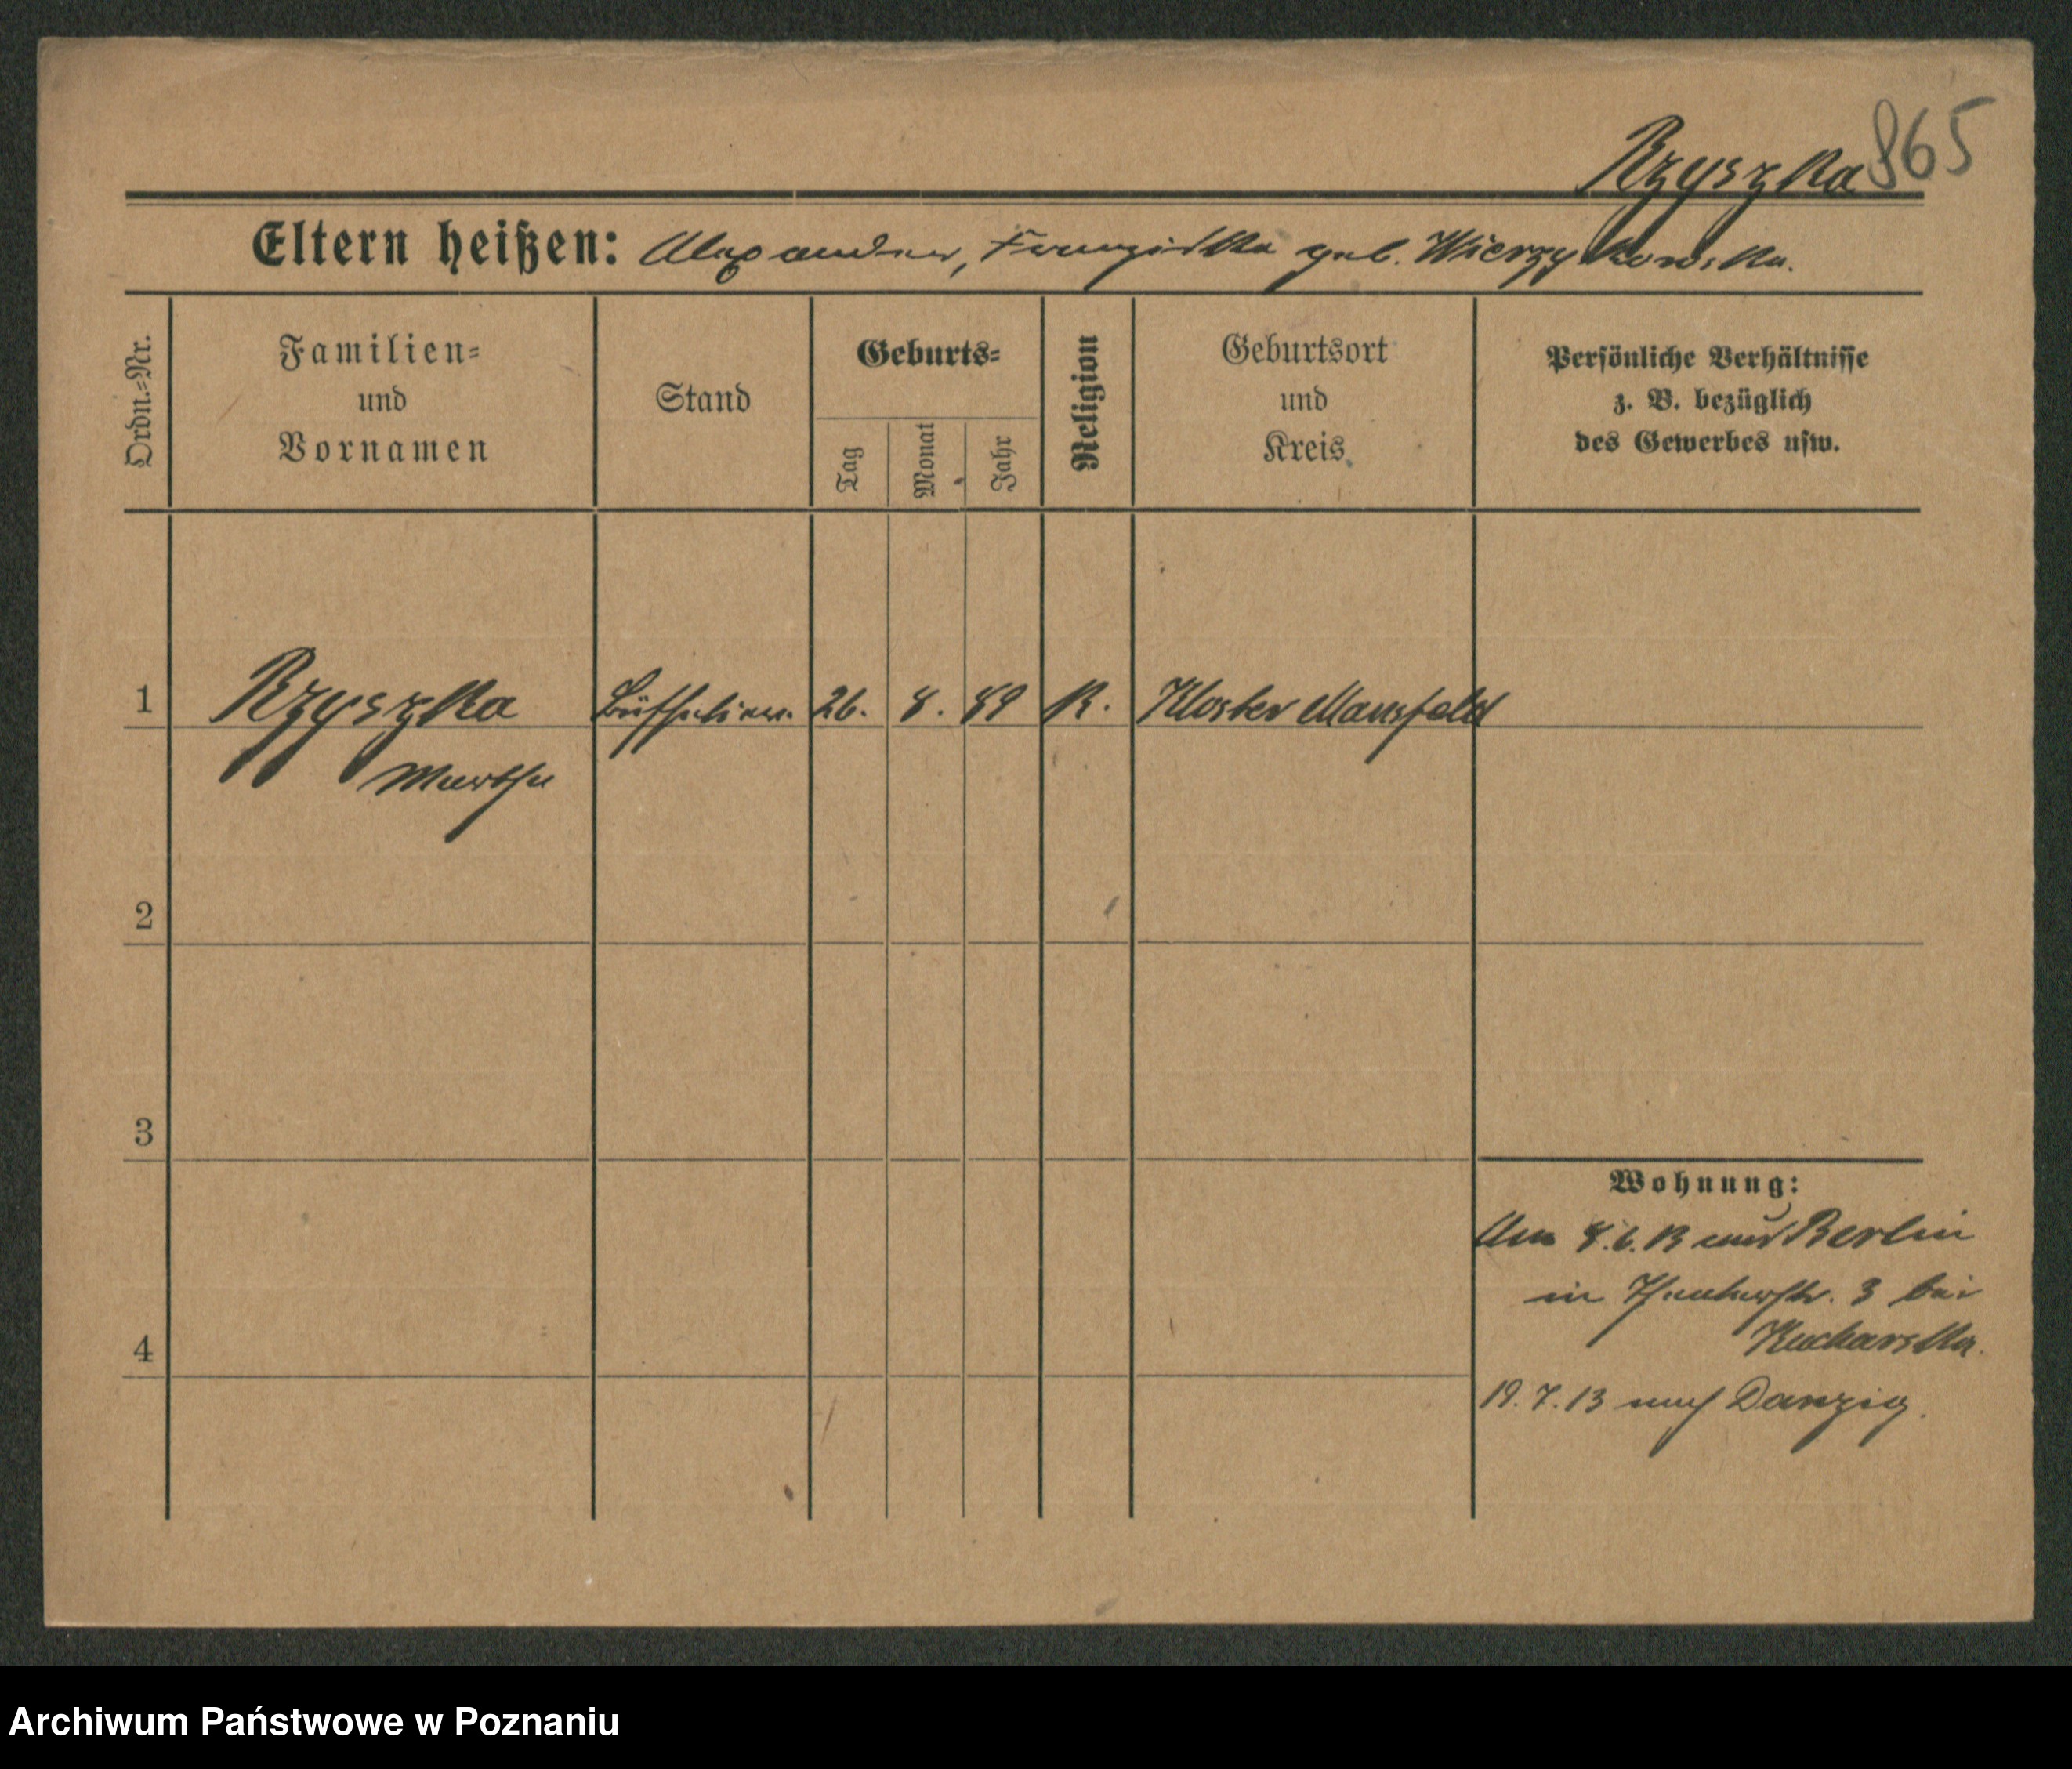 Rzyszka 865
Eltern heißen: Alexander, Franziska geb. Wierzykowska.
Ordn.=Nr.
Familien=
und
Vornamen
Stand
Geburts=
Tag
Monat
Jahr
Religion
Geburtsort
und
Kreis
Persönliche Verhältnisse
z. B. bezüglich
des Gewerbes usw.
1 Rzyszka 26. 8. 89 K. Kloster Mansfeld
Martha
2
3
4
Wohnung:
Am 8.6.13 aus Berlin
in 3 bei
Kucharska.
19.7.13 nach Danzig.
Archiwum Państwowe w Poznaniu